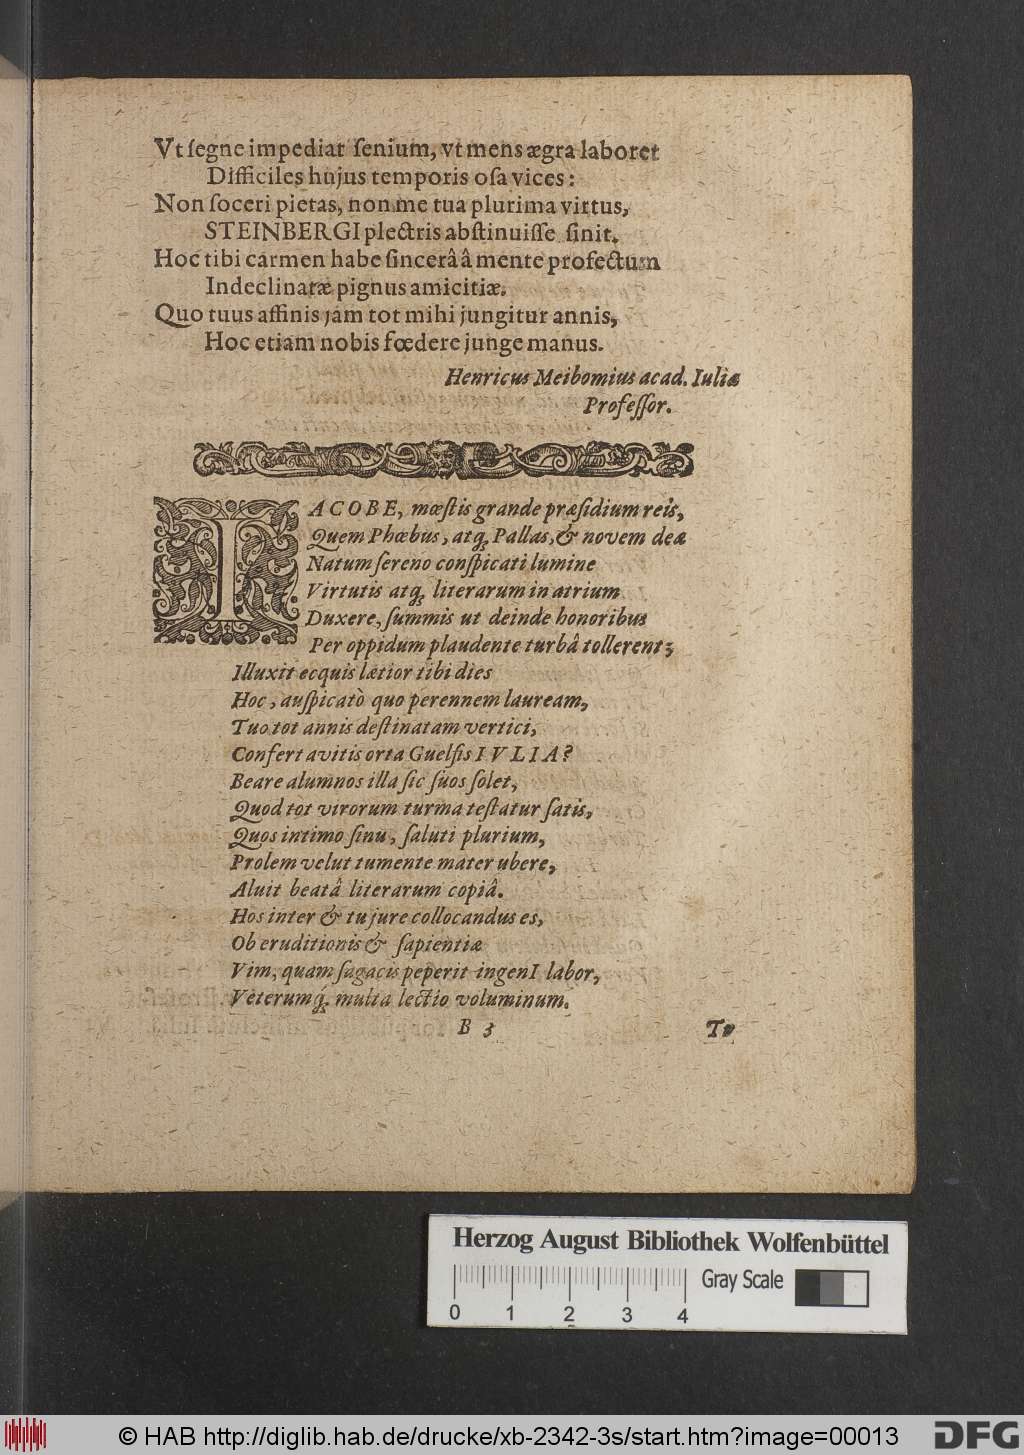 Vt ſegne impediat ſenium, vt mens ægra laboret
Difficiles hujus temporis oſa vices:
Non ſoceri pietas, non me tua plurima virtus,
STEINBERGI plectris abſtinuiſſe ſinit.
Hoc tibi carmen habe ſincerâ â mente profectum
Indeclinatæ pignus amicitiæ.
Quo tuus affinis jam tot mihi jungitur annis,
Hoc etiam nobis fœdere junge manus.
Henricus Meibomius acad. Iuliæ
Profeſſor.
IACOBE, mœſtis grande præſidium reis,
Quem Phœbus, atq; Pallas, & novem deæ
Natum ſereno conſpicati lumine
Virtutis atq; literarum in atrium
Duxere, ſummis ut deinde honoribus
Per oppidum plaudente turbâ tollerent;
Illuxit ecquis lætior tibi dies
Hoc, auſpicatò quo perennem lauream,
Tuo tot annis deſtinatam vertici,
Confert avitis orta Guelfis IVLIA?
Beare alumnos illa ſic ſuos ſolet,
Quod tot virorum turma teſtatur ſatis,
Quos intimo ſinu, ſaluti plurium,
Prolem velut tumente mater ubere,
Aluit beatâ literarum copiâ.
Hos inter & tu jure collocandus es,
Ob eruditionis & ſapientiæ
Vim, quam ſagacis peperit ingenI labor,
Veterumq́; multa lectio voluminum.
B 3 Tv
Herzog August Bibliothek Wolfenbüttel
Gray Scale
0 1 2 3 4
© HAB http://diglib.hab.de/drucke/xb-2342-3s/start.htm?image=00013
DFG